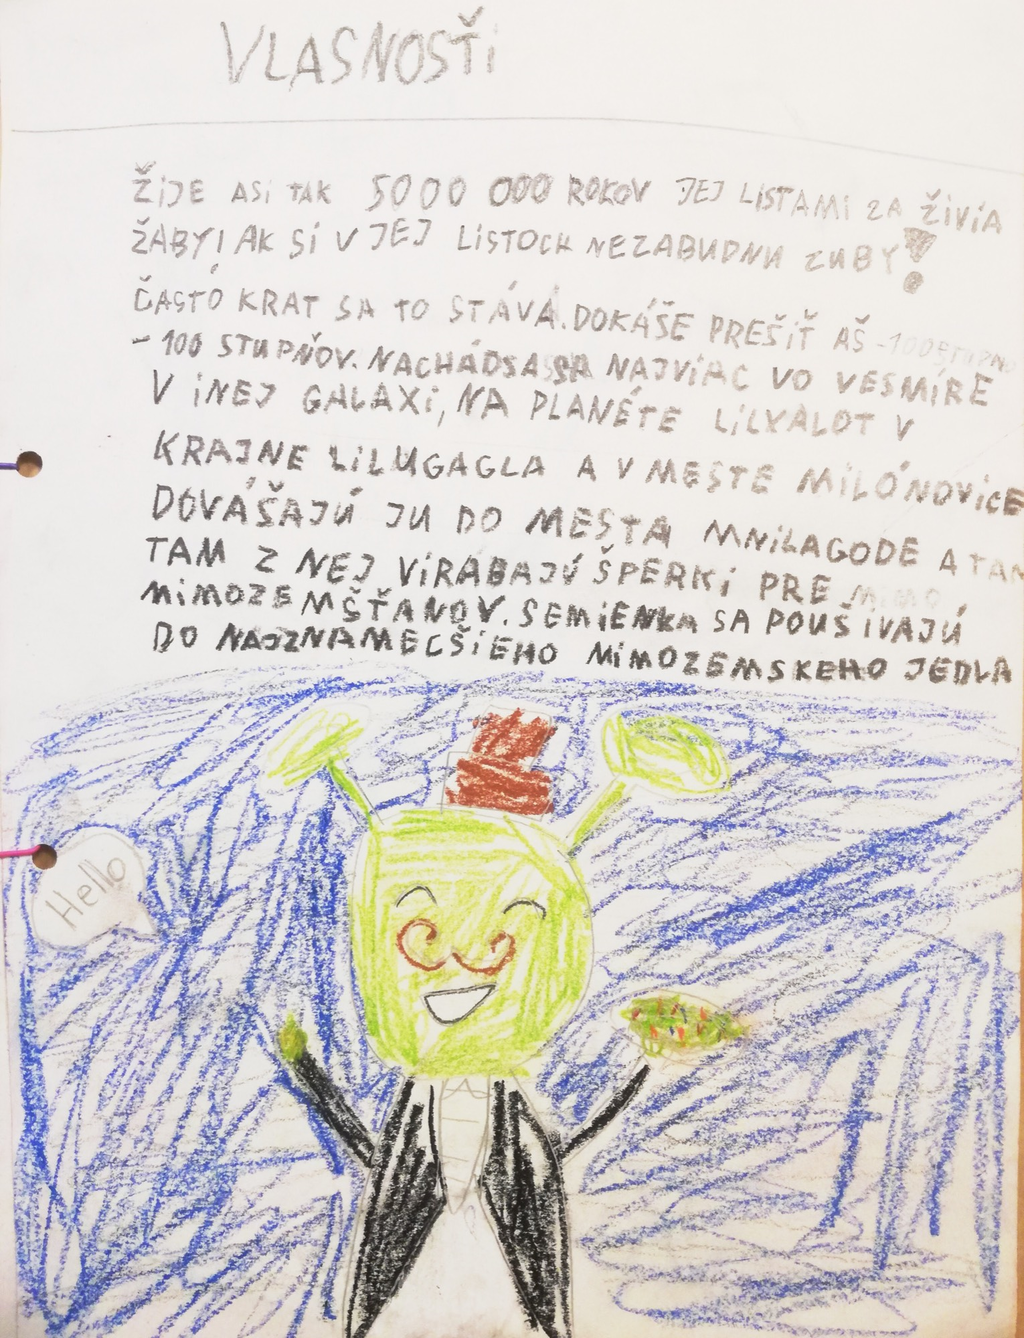 VLASNOSŤi
ŽiJE ASi TAK 5000 000 ROKOV JEJ LiSTAMi ZA ŽiViA
ŽABY! AK Si V JEJ LiSTOCH NEZABUDNU ZUBY!
ČASTO KRAT SA TO STÁVA. DOKÁŠE PREŠiŤ AŠ -100 STUPŇO
-100 STUPŇOV. NACHÁDSA SA NAJViAC VO VESMÍRE
V iNEJ GALAXi, NA PLANÉTE LiLXALOT V
KRAJNE LiLUGAGLA A V MESTE MiLÓNOViCE
DOVÁŠAJÚ JU DO MESTA MNiLAGODE A TAM
TAM Z NEJ ViRÁBAJÚ ŠPERKi PRE MiMO
MiMOZEMŠŤANOV. SEMiENKA SA POUŠiVAJÚ
DO NAJZNAMECŠiEHO MiMOZEMSKEHO JEDLA
Hello